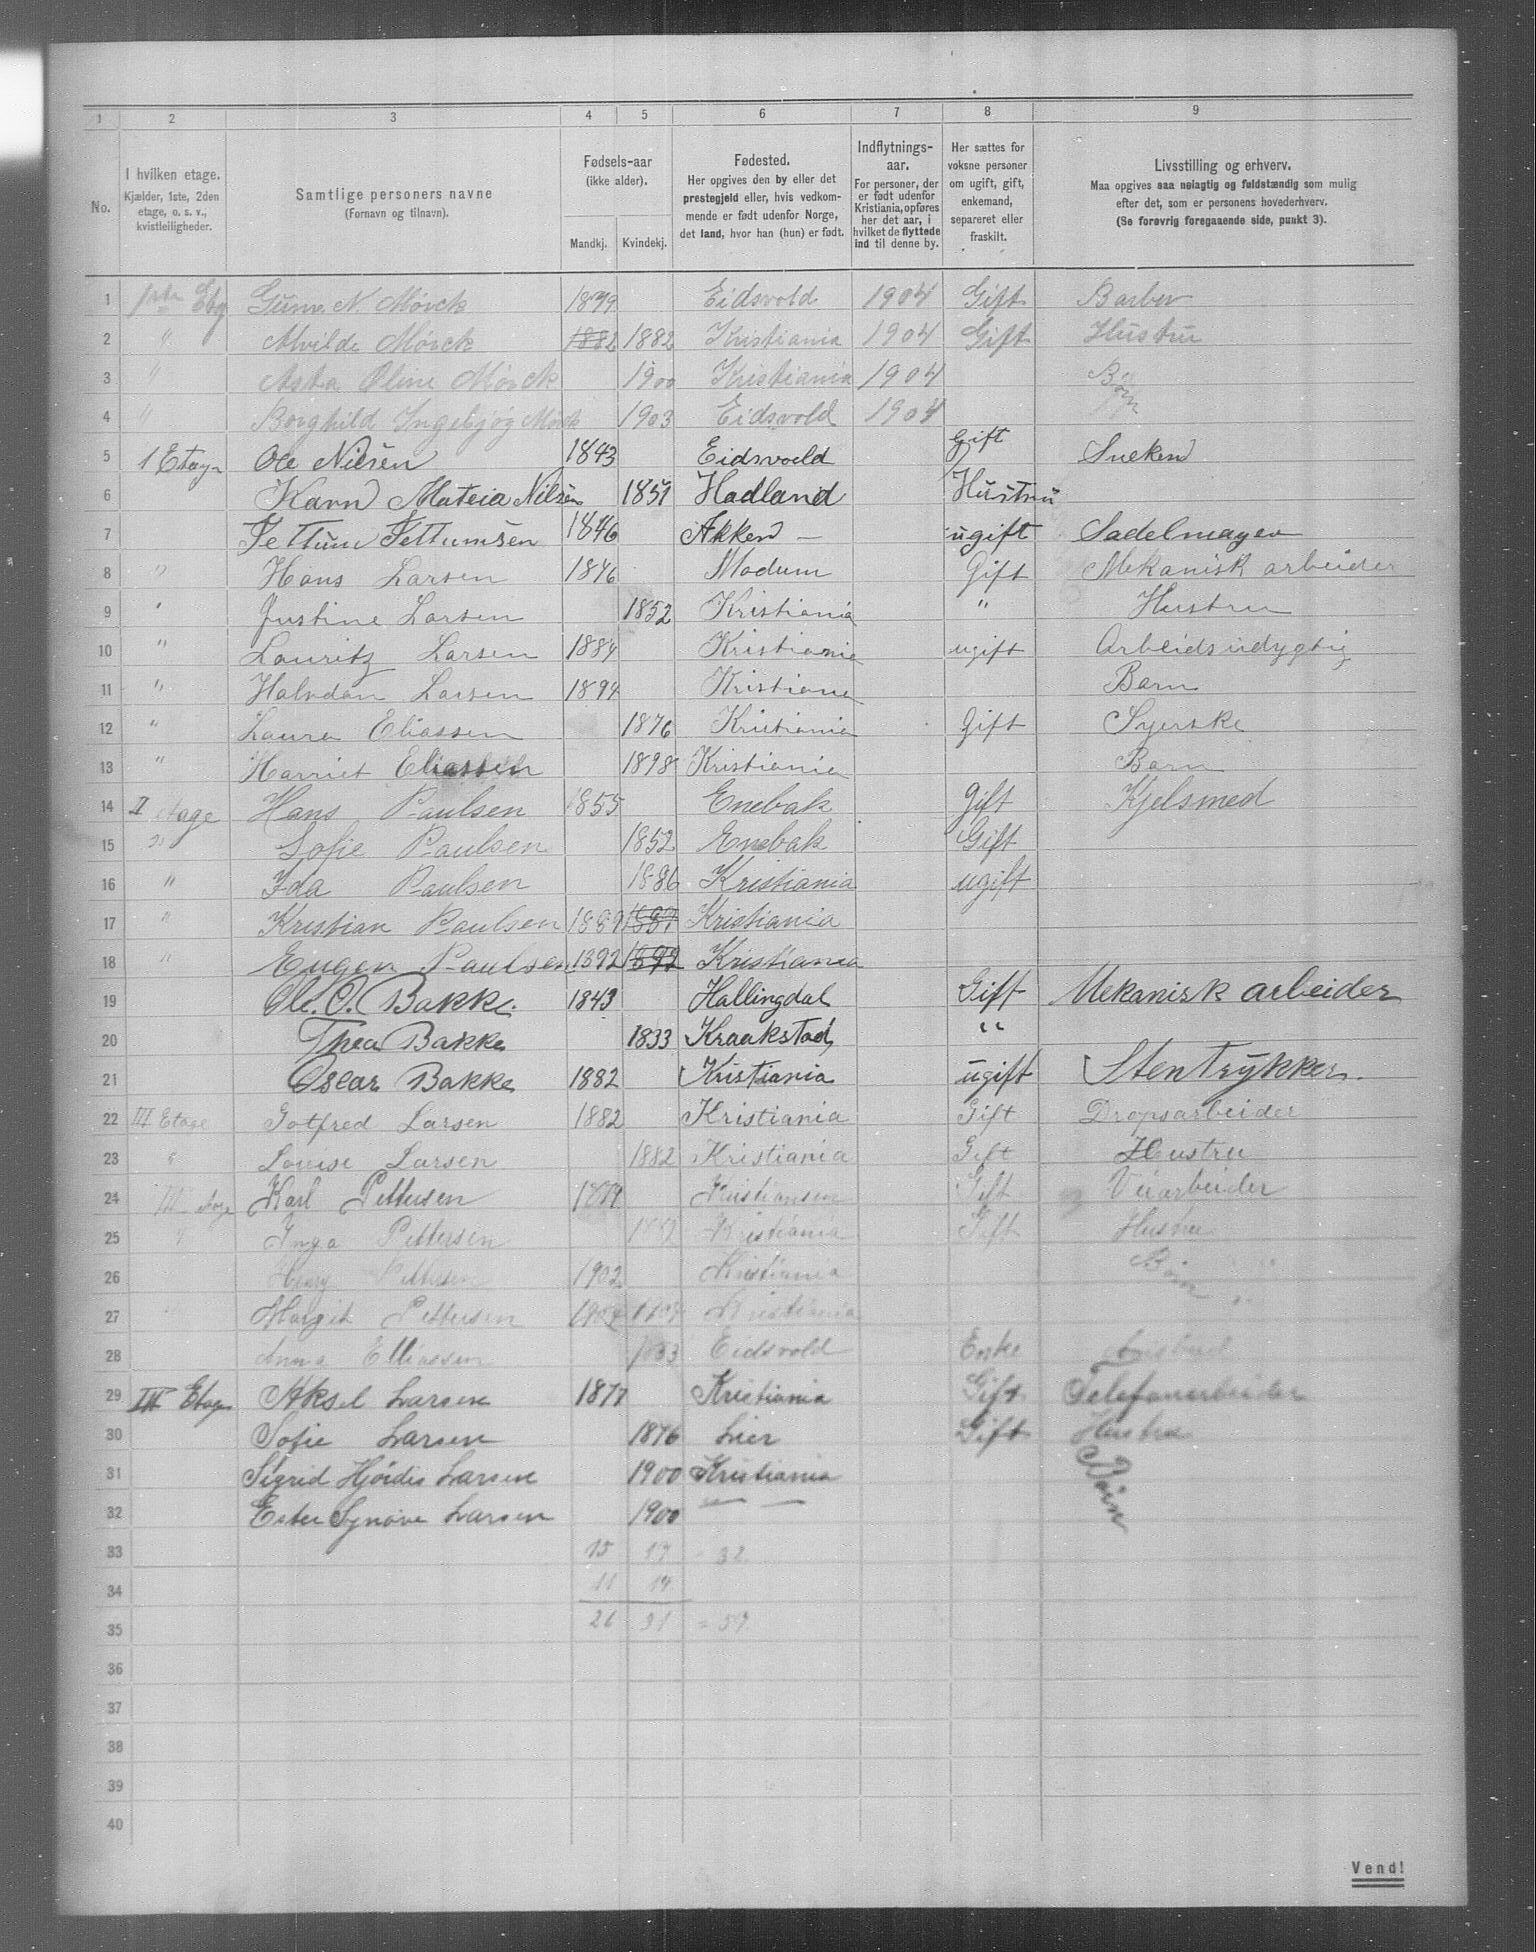 1 2 3 4 5 6 7 8 9
No.
I hvilken etage.
Kjælder, 1ste, 2den
etage, o. s. v.,
kvistleiligheder.
Samtlige personers navne
(Fornavn og tilnavn).
Fødsels-aar
(ikke alder).
Mandkj. Kvindekj.
Fødested.
Her opgives den by eller det
prestegjeld eller, hvis vedkom-
mende er født udenfor Norge,
det land, hvor han (hun) er født.
Indflytnings-
aar.
For personer, der
er født udenfor
Kristiania, opføres
her det aar, i
hvilket de flyttede
ind til denne by.
Her sættes for
voksne personer
om ugift, gift,
enkemand,
separeret eller
fraskilt.
Livsstilling og erhverv.
Maa opgives saa nøiagtig og fuldstændig som mulig
efter det, som er personens hovederhverv.
(Se forøvrig foregaaende side, punkt 3).
1 1ste Etag N. Mørck 1879 Eidsvold 1904 Gift Barber
2 " Mørck 1882 1882 Kristiania 1904 Gift Hustru
3 " Asta Oline Mørck 1900 Kristiania 1904 Børn
4 " Borghild Ingebjøg Mørck 1903 Eidsvold 1904
5 1 Etage Ole Nilsen 1843 Eidsvoeld Gift
6 Karn Mateia Nilsen 1851 Hadland Hustru
7 1846 ugift Sadelmager
8 " Hans Larsen 1846 Modum Gift Mekanisk arbeider
9 " Justine Larsen 1852 Kristiania " Hustru
10 " Lauritz Larsen 1884 Kristiania ugift Arbeidsudygtig
11 " Halvdan Larsen 1894 Kristiania Barn
12 " Laura Eliassen 1876 Kristiania Gift Syerske
13 " Harriet Eliassen 1898 Kristiania Barn
14 II etage Hans Paulsen 1855 Enebak Gift Kjelsmed
15 " Sofie Paulsen 1852 Enebak Gift
16 " Ida Paulsen 1886 Kristiania ugift
17 " Kristian Paulsen 1889 1889 Kristiania
18 " Eugen Paulsen 1892 1892 Kristiania
19 Ole. O. Bakke. 1843 Hallingdal Gift Mekanisk arbeider
20 Thea Bakke 1833 Kraakstad "
21 Oscar Bakke 1882 Kristiania ugift Stentrykker.
22 III Etage Gotfred Larsen 1882 Kristiania Gift Dropsarbeider
23 " Lovise Larsen 1882 Kristiania Gift Hustru
24 III etage Karl Pettersen Kristiansen Gift Veiarbeider
25 " Inga Pettersen Kristiania Gift Hustru
26 Henry Pettersen 1902 Kristiania Børn
27 Margit Pettersen 1904 1904 Kristiania "
28 Anna Elliassen 1833 Eidsvold Enke
29 III Etage Aksel Larsen 1877 Kristiania Gift Telefonarbeider
30 Sofie Larsen 1876 Lier Gift Hustru
31 Sigrid Hjørdis Larsen 1900 Kristiania Børn
32 Ester Synøve Larsen 1900 — —
33 15 17 = 32
34 11 14
35 26 31 = 57
36
37
38
39
40
Vend!